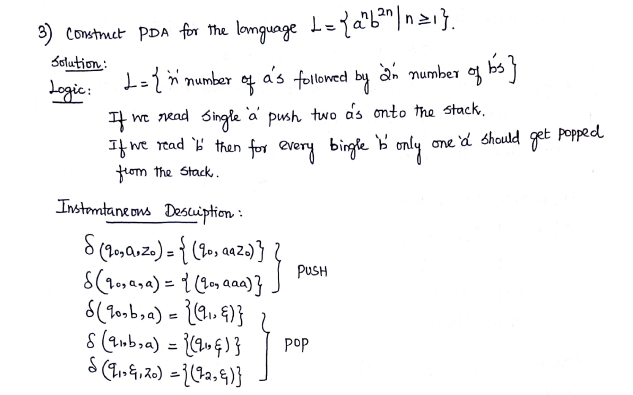 3) Construct PDA for the language L = {aⁿb²ⁿ | n ≥ 1}.
Solution:
Logic: L = {'n' number of a's followed by '2n' number of b's}
If we read single 'a' push two a's onto the stack.
If we read 'b' then for every single 'b' only one 'a' should get popped
from the stack.
Instantaneous Description:
δ(q₀, a, z₀) = {(q₀, aaz₀)}
δ(q₀, a, a) = {(q₀, aaa)} PUSH
δ(q₀, b, a) = {(q₁, ε)}
δ(q₁, b, a) = {(q₁, ε)} POP
δ(q₁, ε, z₀) = {(q₂, ε)}